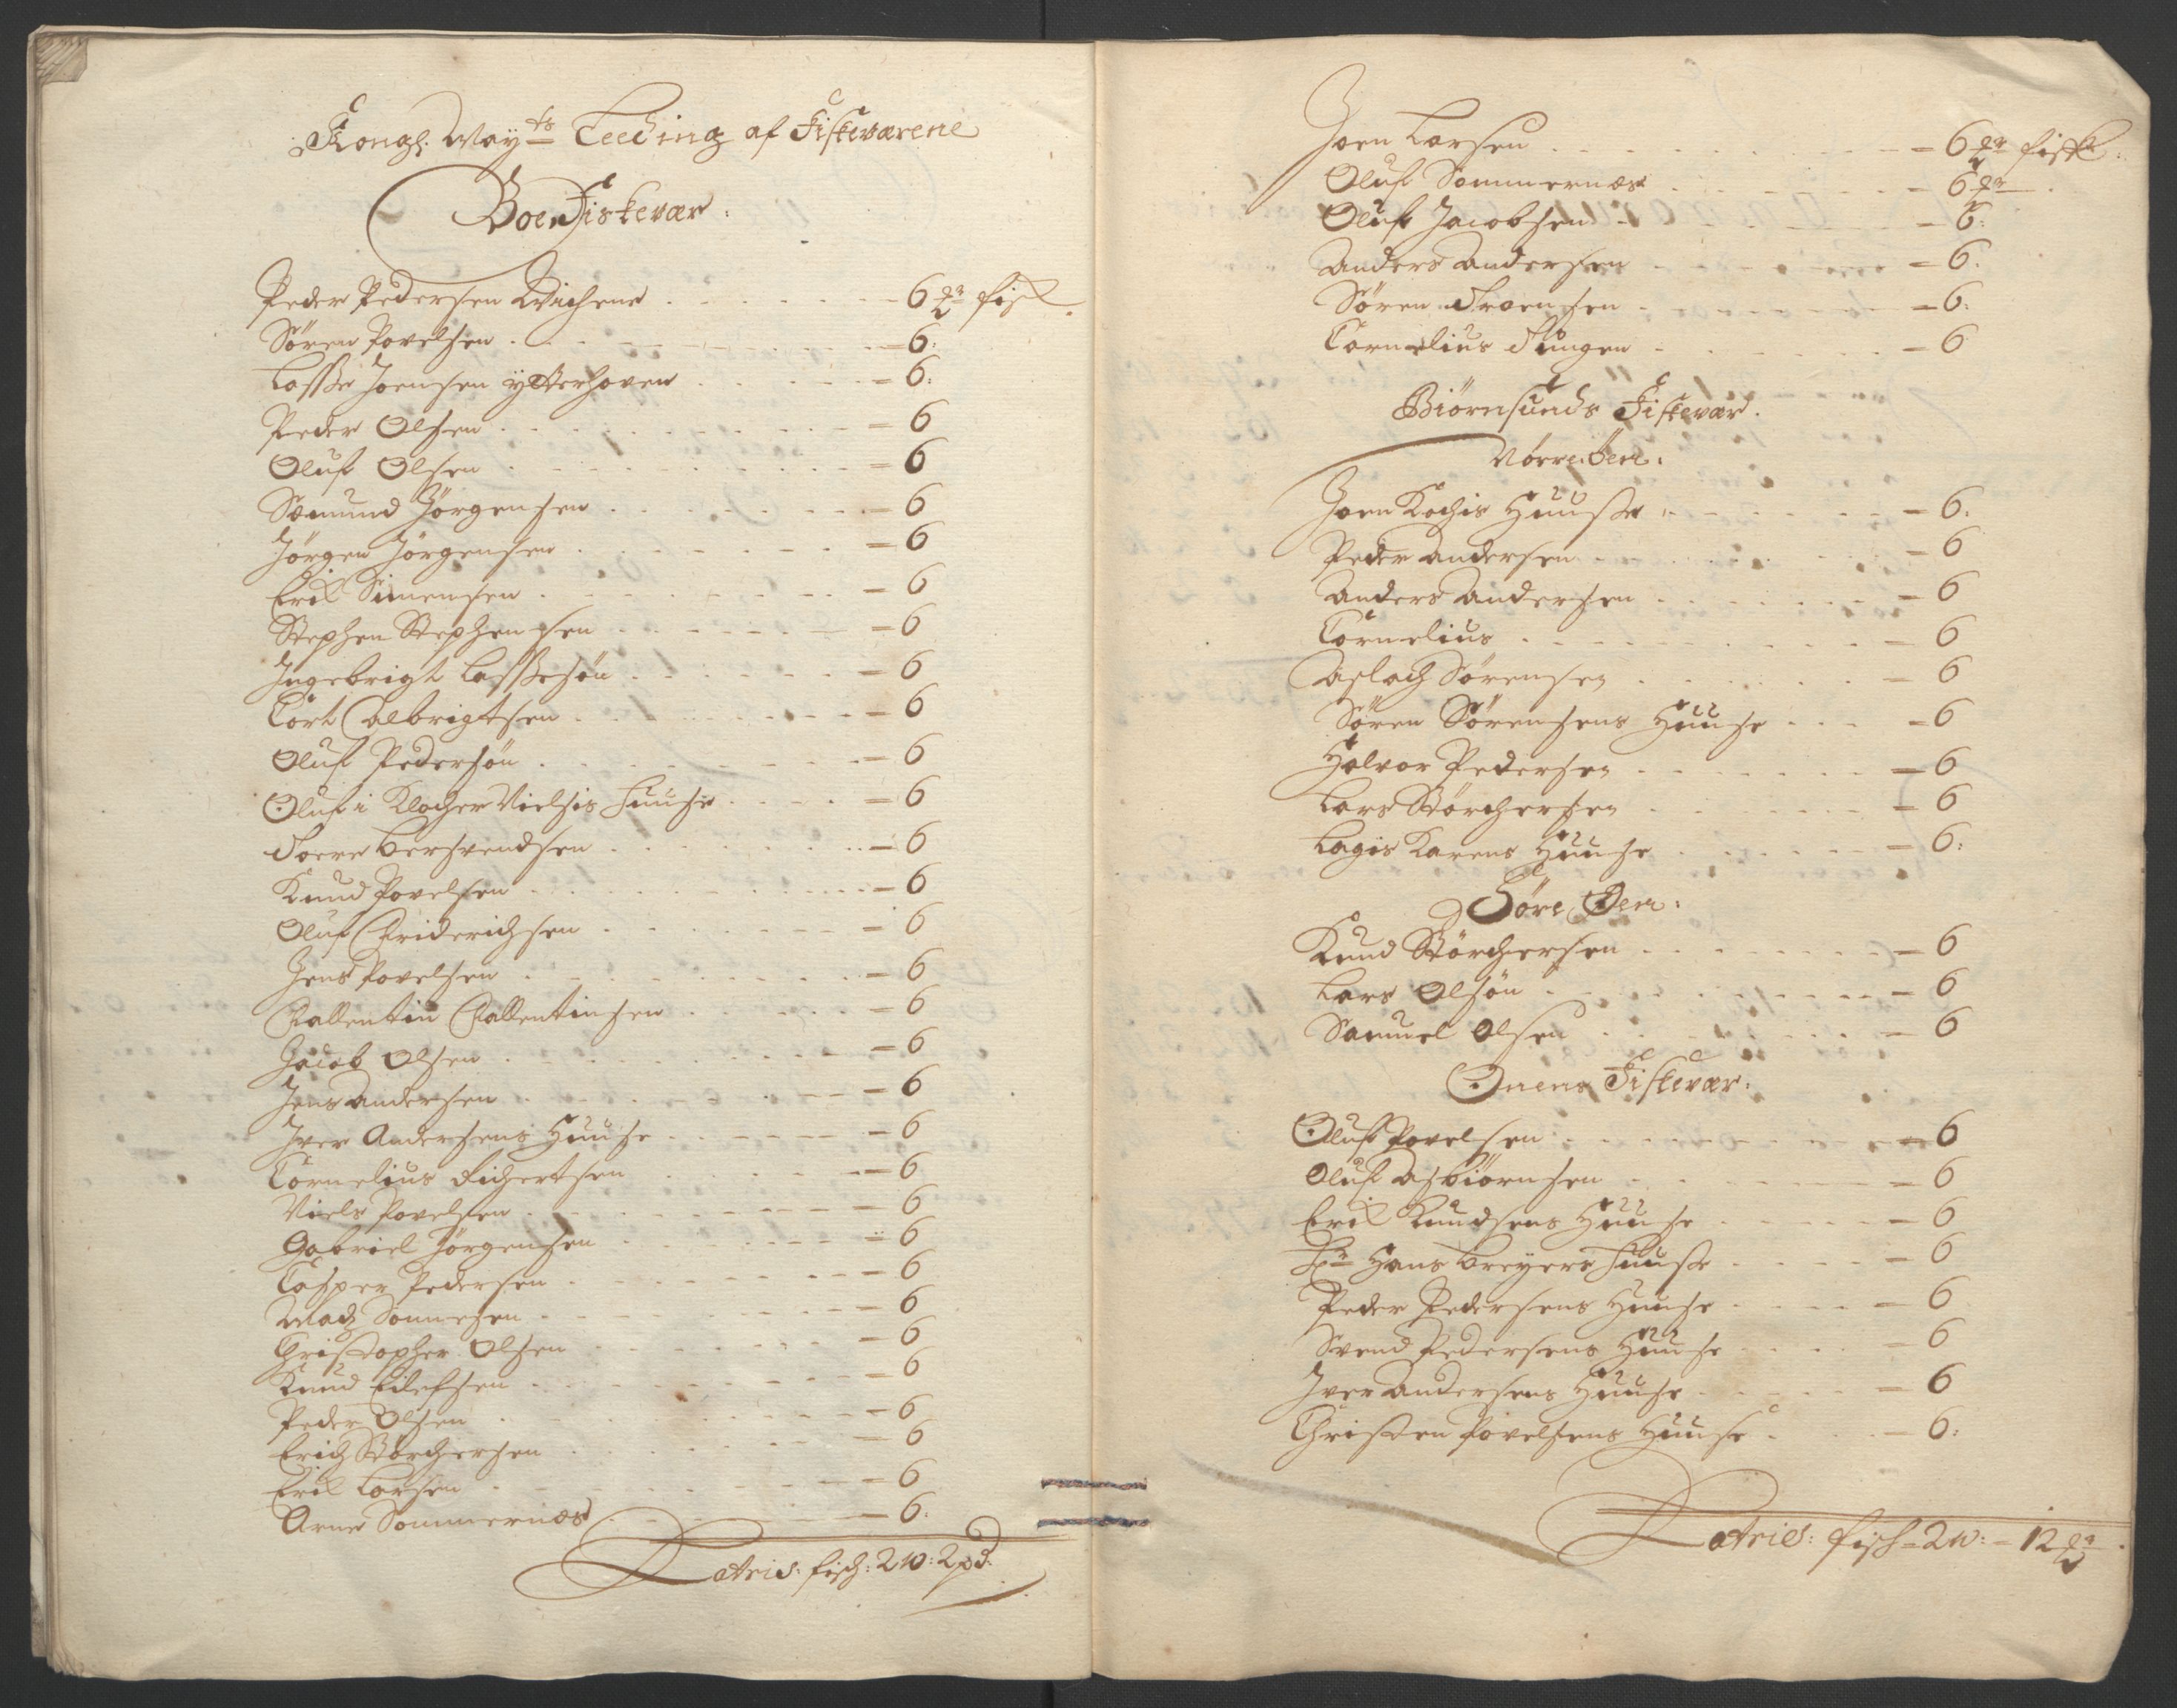 Kongl. May.ts Leeding af Fiskeværene
Boen Fiskevær:
Peder Pedersen Wichene - 6 pd fisk
Søren Povelsen - 6:
Lasse Joensen ytterhoven - 6:
Peder Olsen - 6
Oluf Olsen - 6
Somund Jørgensen - 6
Jørgen Jørgensen - 6
Eril Simensen - 6
Stephen Stephensen - 6
Ingebrigt Lassesøn - 6
Cort Albrigtsen - 6
Oluf Pedersøn - 6
Oluf i Klocher Nielsis Huuse - 6
Toere Bersvendsen - 6
Knud Povelsen - 6
Oluf Friderichsen - 6
Jens Povelsen - 6
Vallentin Vallentinsen - 6
Jacob Olsen - 6
Jens Andersen - 6
Iver Andersens Huuse - 6
Cornelius Richertsen - 6
Niels Povelsen - 6
Gabriel Jørgensen - 6
Casper Pedersen - 6
Madz Sonnesen - 6
Christopher Olsen - 6
Knud Eilefsen - 6
Peder Olsen - 6
Erich Størchersen - 6
Eril Larsen - 6
Arne Sommernæs - 6:
Lateris: fisch: 2 w: 2 pd:
Joen Larsen - 6 pd fisk:
Oluf Sommernæs - 6 pd
Oluf Jacobsen - 6:
Anders Andersen - 6:
Søren Troensen - 6:
Cornelius Tungen - 6
Biørnsunds Fiskevær.
Nørre Øen:
Joen Kochis Huuse - 6:
Peder Andersen - 6
Anders Andersen - 6
Cornelius - 6
Aslach Sørensen - 6
Søren Sørensens Huuse - 6
Halvor Pedersen - 6
Lars Størchersen - 6
Lagis Karens Huuse - 6:
Søre Øen:
Knud Størchersen - 6
Lars Olsøn - 6
Samuel Olsen - 6
Onens Fiskevær:
Oluf Povelsen - 6
Oluf Asbiørnsen - 6
Eril Knudsens Huuse - 6
Hr Hans Breyers Huuse - 6
Peder Pedersens Huuse - 6
Svend Pedersens Huuse - 6
Iver Andersens Huuse - 6
Christen Povelsens Huuse - 6:
Lateris: fisch - 2 w: - 12 pd